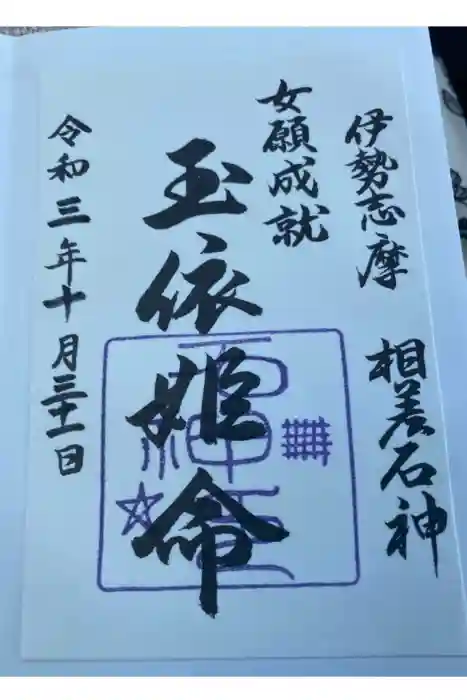 伊勢志摩 相差石神
女願成就
玉依姫命
令和三年十月三十一日